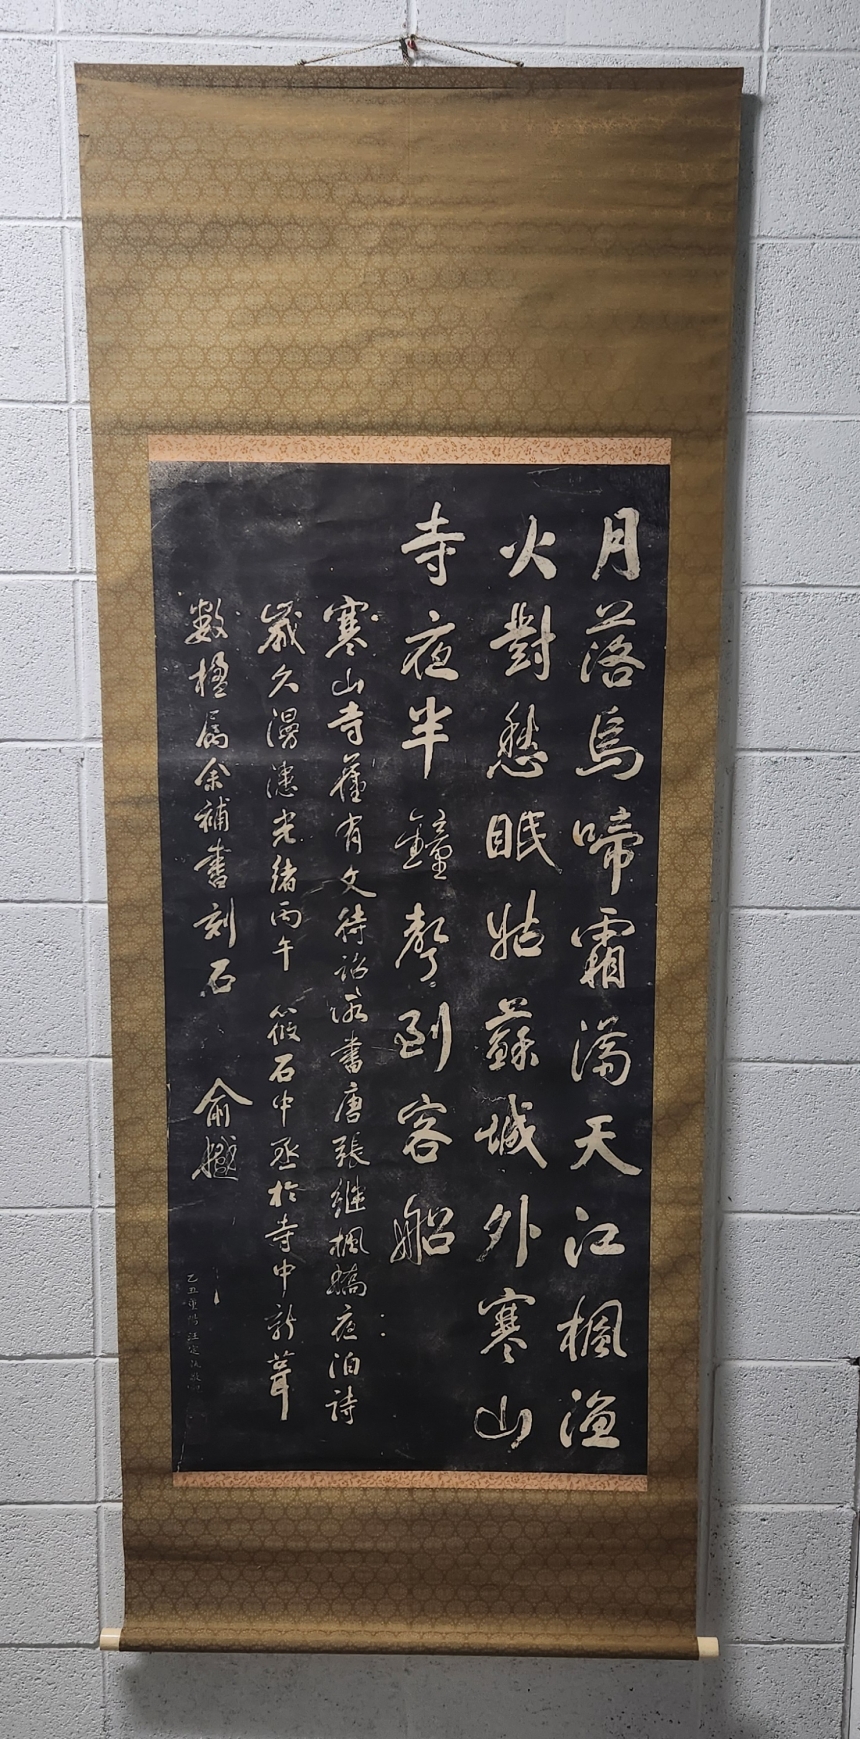 月落烏啼霜滿天江楓漁
火對愁眠姑蘇城外寒山
寺夜半鐘聲到客船
寒山寺舊有文待詔所書唐張繼楓橋夜泊詩
歲久漫漶光緒丙午筱石中丞於寺中新葺
數楹屬余補書刻石
俞樾
乙丑重陽